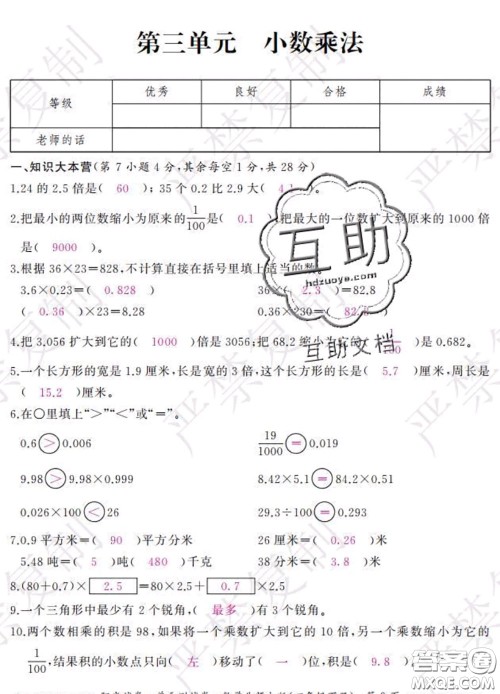 第三单元 小数乘法
等级 优秀 良好 合格 成绩
老师的话
一、知识大本营(第7小题4分,其余每空1分,共28分)
1.24的2.5倍是( 60 );35个0.2比2.9大( 4.1 )。
2.把最小的两位数缩小为原来的1/100是( 0.1 ),把最大的一位数扩大到原来的1000倍
是( 9000 )。
3.根据36×23=828,不计算直接在括号里填上适当的数。
3.6×0.23=( 0.828 ) 36×( 2.3 )=82.8
( 0.36 )×23=8.28 0.36×230=( 82.8 )
4.把3.056扩大到它的( 1000 )倍是3056;把68.2缩小为它的( /100 )是0.682。
5.一个长方形的宽是1.9厘米,长是宽的3倍,这个长方形的长是( 5.7 )厘米,周长是
( 15.2 )厘米。
6.在○里填上“>”“<”或“=”。
0.6 > 0.006 19/1000 = 0.019
9.98 > 9.98×0.999 8.42×5.1 = 84.2×0.51
0.026×100 < 26 29.3÷100 = 0.293
7.0.9平方米=( 90 )平方分米 26厘米=( 0.26 )米
5.48吨=( 5 )吨( 480 )千克 38分米=( 3.8 )米
8.(80+0.7)× 2.5 =80×2.5+ 0.7 ×2.5
9.一个三角形中最少有2个锐角,( 最多 )有3个锐角。
10.两个数相乘的积是98,如果将一个乘数扩大到它的10倍,另一个乘数缩小为它的
1/100,结果积的小数点只向( 左 )移动了( 一 )位,积是( 9.8 )。
严禁复制
互助
hdzuoye.com
互助文档
答案圈
MXQE.COM